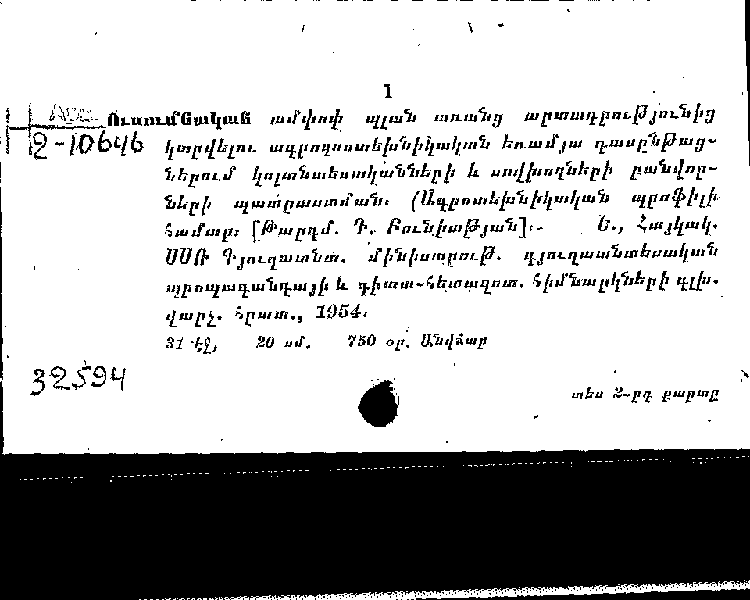 1
Ուսումնական ամփոփ պլան առանց արտադրությունից
2-10646
կտրվելու ագրոզոոտեխնիկական եռամյա դասընթաց-
ներում կոլտնտեսականների և սովխոզների բանվոր-
ների պատրաստման: (Ագրոտեխնիկական պրոֆիլի
համար: [Թարգմ. Դ. Բունիաթյան]:- Ե., Հայկակ.
ՍՍՌ Գյուղատնտ. մինիստրութ. գյուղատնտեսական
պրոպագանդայի և գիտա-հետազոտ. հիմնարկների գլխ.
վարչ. հրատ., 1954.
31 էջ, 20 սմ. 750 օր. Անվճար
32594
տես 2-րդ քարտը